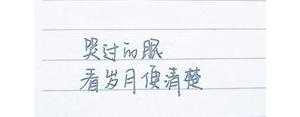 哭过的眼
看岁月更清楚